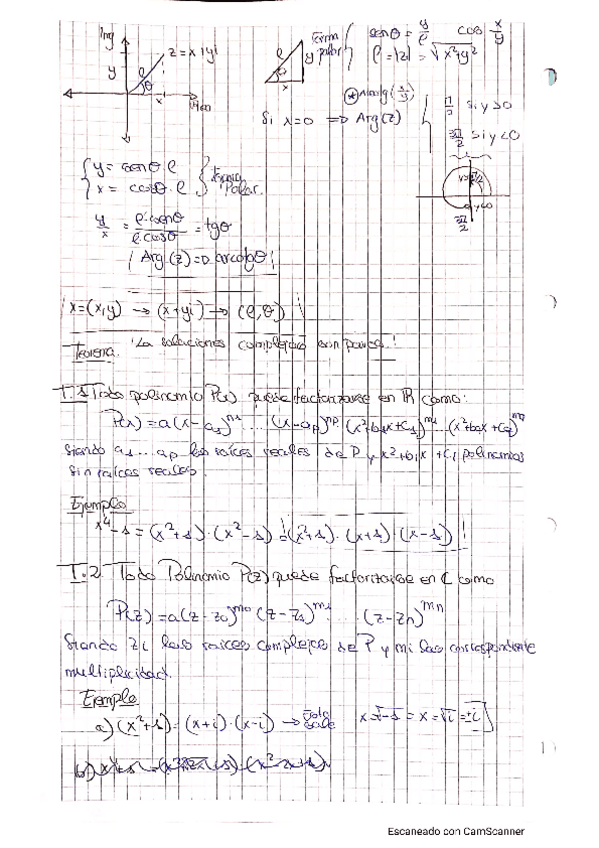 Img
y
z = x + yi
ρ
θ
x
Real
ρ
y
x
Forma polar
senθ = y/ρ cos x/y
ρ = |z| = √x²+y²
Si x=0 => Arg(z)
π/2 si y>0
3π/2 si y<0
y>0 π/2
y<0
3π/2
y = senθ·ρ
x = cosθ·ρ
Forma Polar.
y/x = ρ·senθ/ρ·cosθ = tgθ
Arg(z) => arcotgθ
x=(x,y) → (x+yi) → (ρ,θ)
Teorema. La soluciones complejas son pares!
T.1 Todo polinomio P(x) puede factorizarse en ℝ como:
P(x) = a(x-a₁)ⁿ¹ .... (x-aₚ)ⁿᵖ (x²+b₁x+c₁)ᵐ¹ ...(x²+bqx+cq)ᵐq
siendo a₁....aₚ las raíces reales de P y x²+b₁x+c₁ polinomios
sin raíces reales.
Ejemplo
x⁴-1 = (x²+1)·(x²-1) = (x²+1)·(x+1)·(x-1)
T.2. Todo Polinomio P(z) puede factorizarse en ℂ como
P(z) = a(z-z₀)ᵐ⁰ (z-z₁)ᵐ¹ .... (z-zn)ᵐⁿ
Siendo zi las raíces complejas de P y mi sus correspondiente
multiplicidad.
Ejemplo
a) (x²+1) = (x+i)·(x-i) → sale x=√-1 = x = √i = ±i
b)
Escaneado con CamScanner